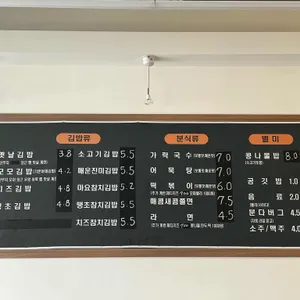 김밥류
옛날김밥 3.8
모모김밥 4.2
치즈김밥 4.8
땡초김밥 4.8
소고기김밥 5.5
매운진미김밥 5.5
마요참치김밥 5.2
땡초참치김밥 5.5
치즈참치김밥 5.5
분식류
가락국수 7.0
어묵탕 7.0
떡볶이 6.0
매콤새콤쫄면 7.5
라면 4.5
별미
콩나물밥 8.0
공깃밥 1.0
음료 2.0
분다버그 4.0
소주/맥주 4.0